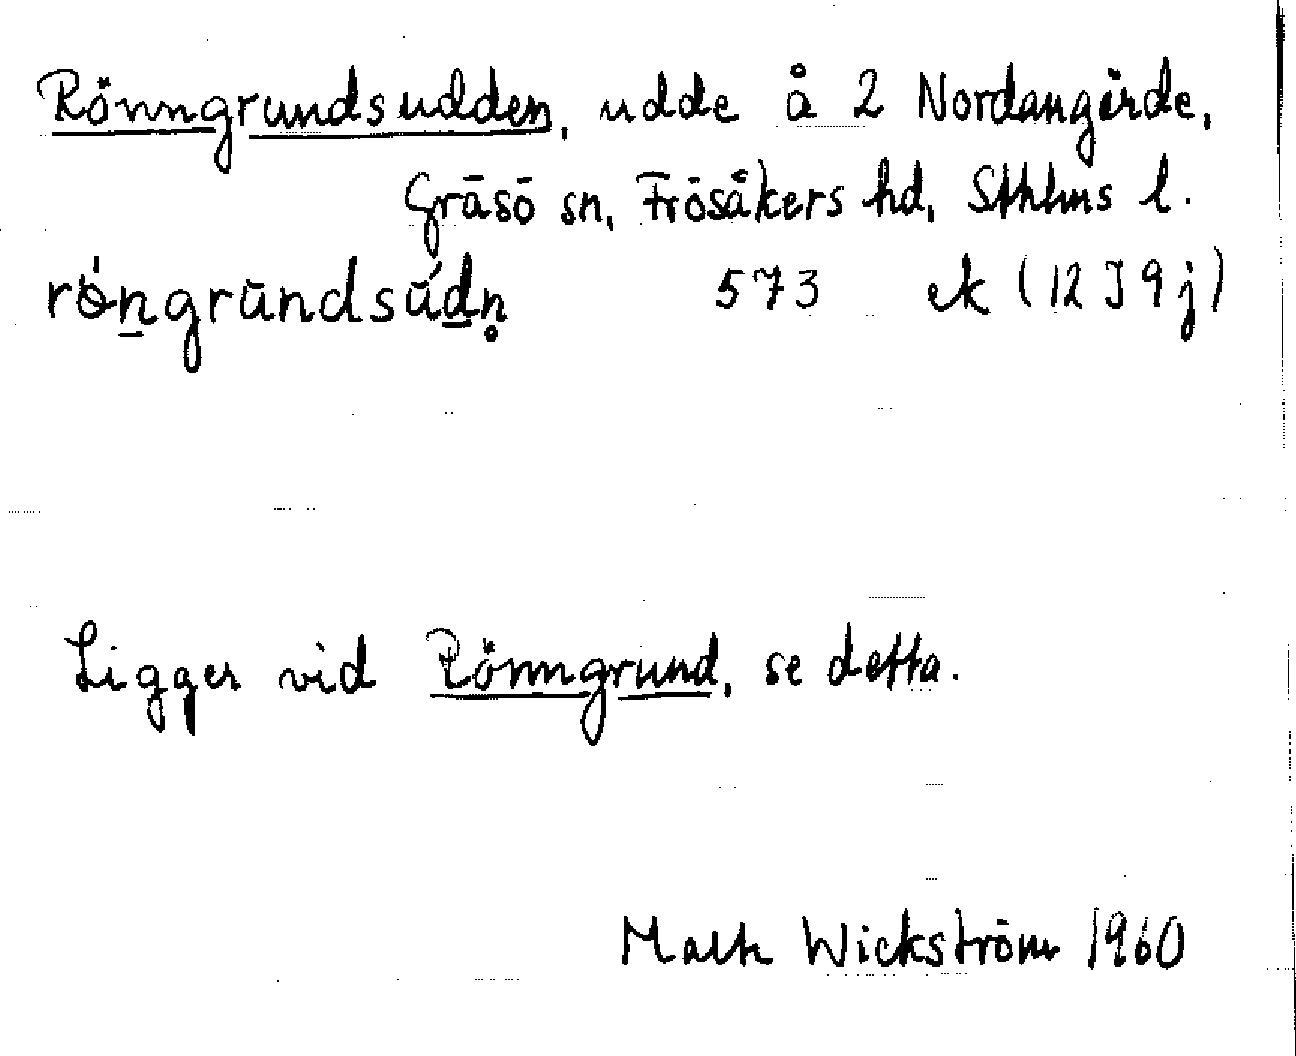 Rönngrundsudden, udde å 2 Nordangärde,
Gräsö sn, Frösåkers hd, Sthlms l.
rö́n̲grŭndsŭ́d̲n̥ 573 ek (12 I 9 j)
Ligger vid Rönngrund, se detta.
Wickström 1960